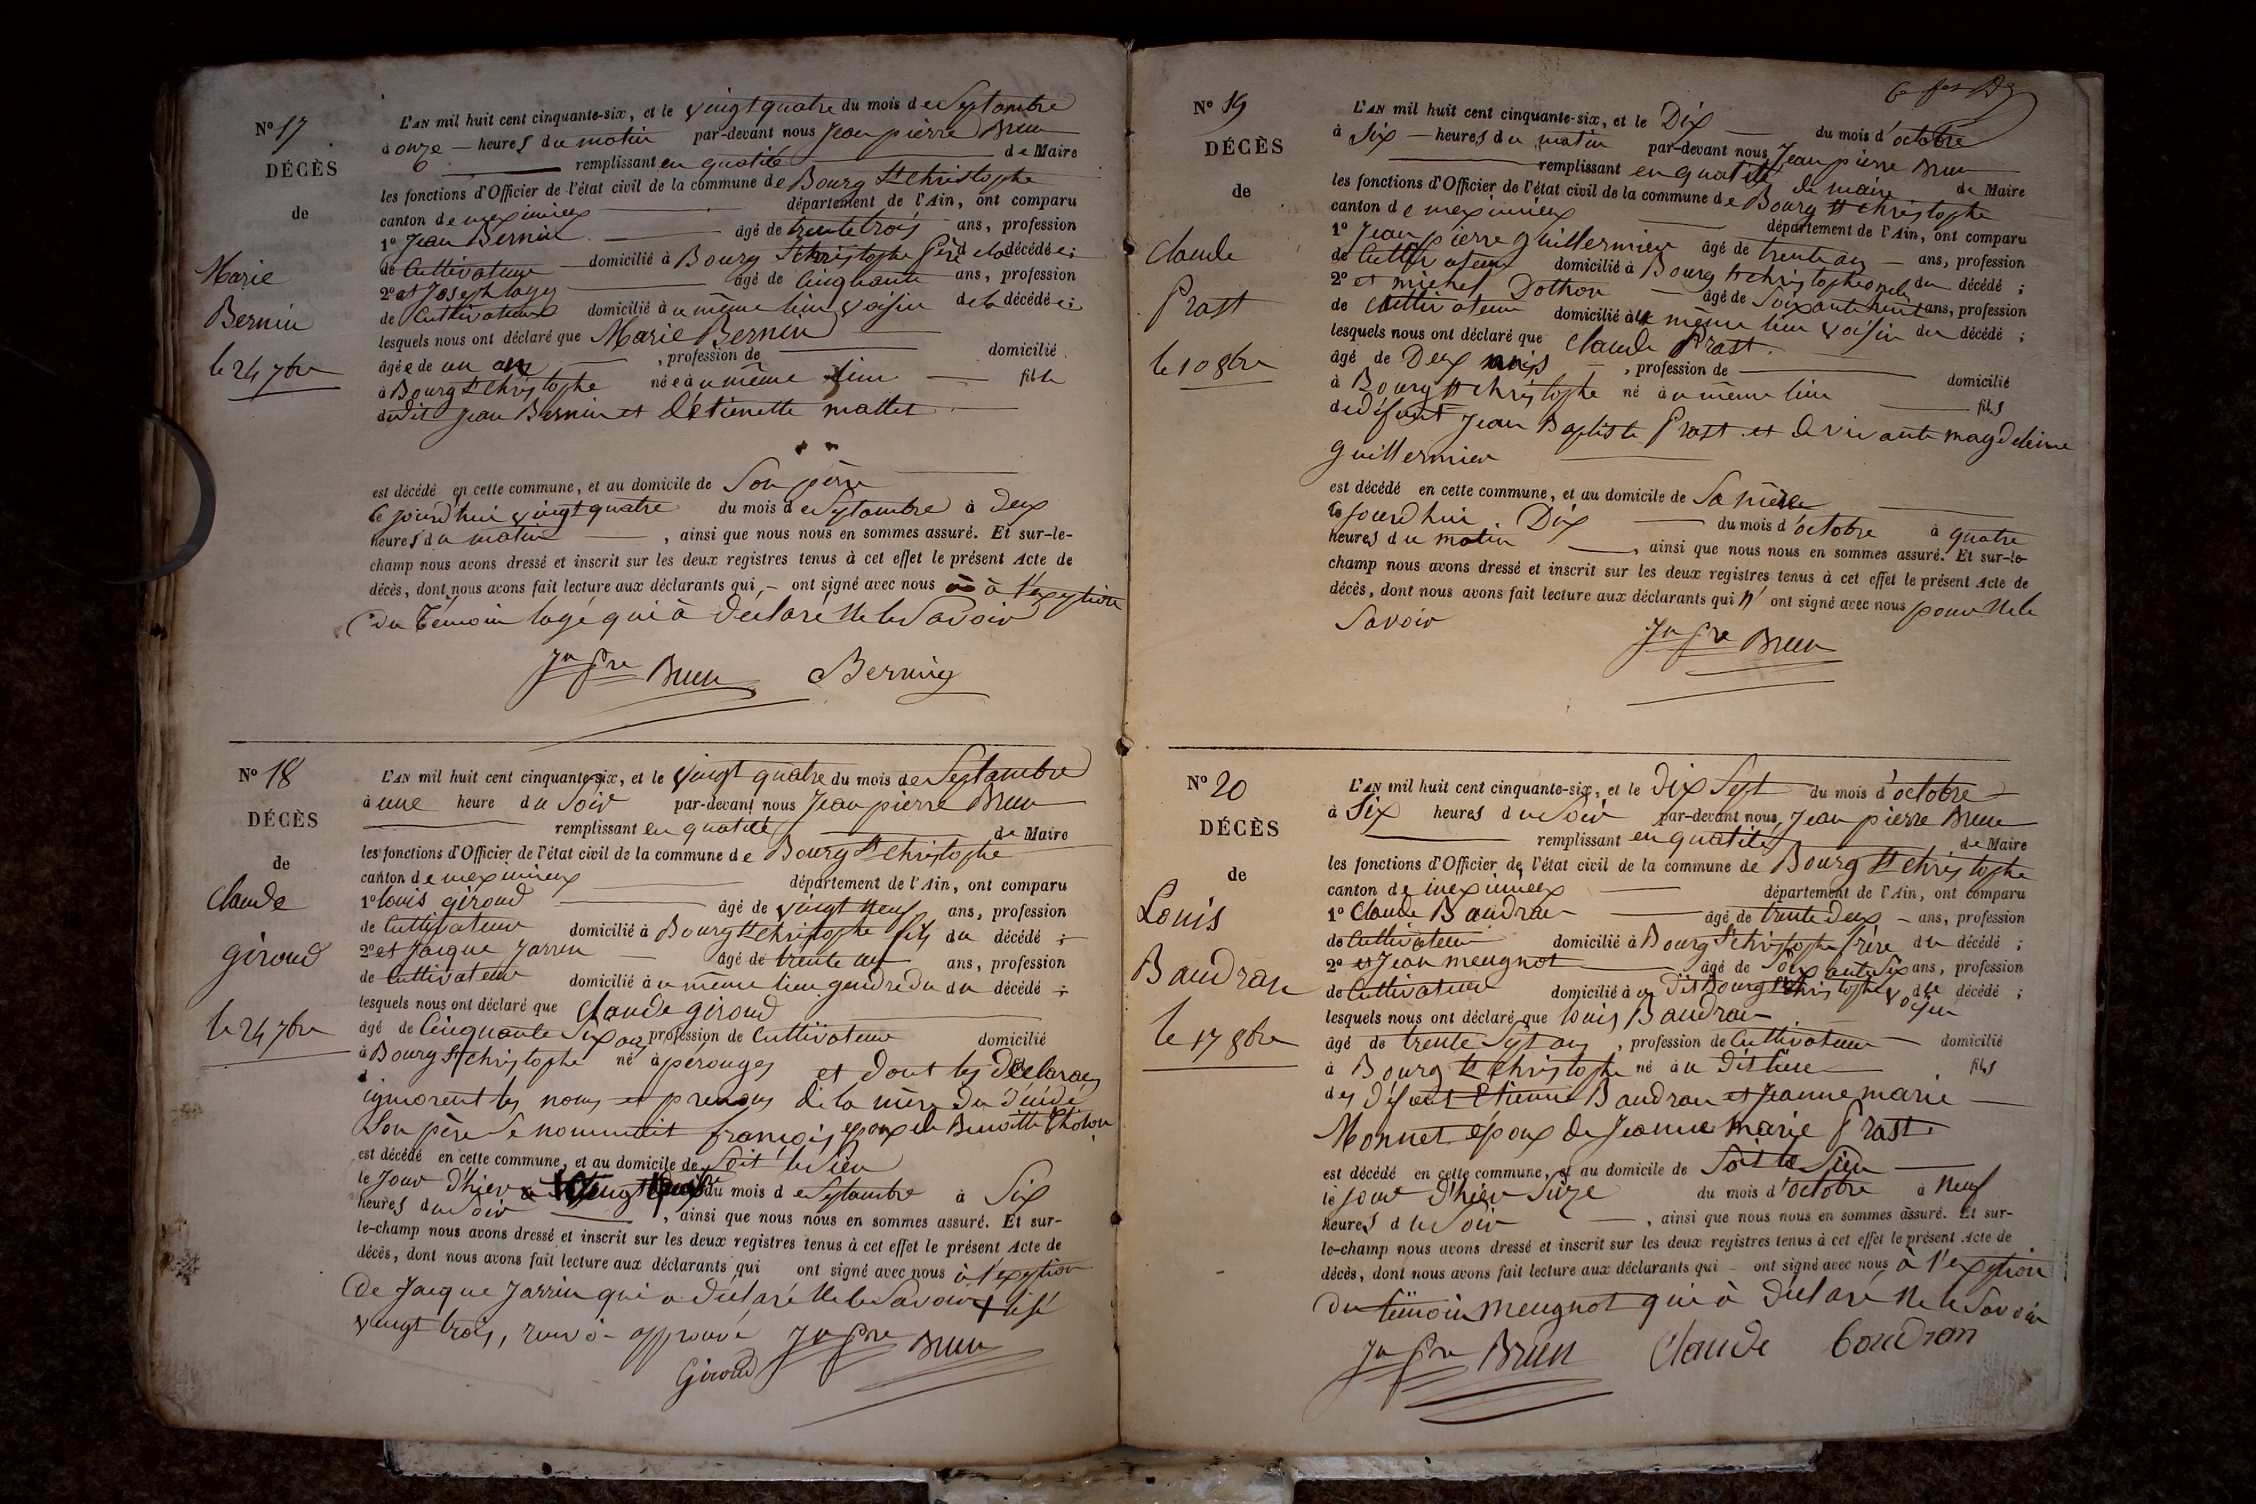 N° 17
DÉCÈS
de
Marie
Bernin
le 24 7bre
L'AN mil huit cent cinquante-six, et le vingt quatre du mois de Septambre
à onze — heures du matin par-devant nous Jean pierre Brun
remplissant en qualité de Maire
les fonctions d'Officier de l'état civil de la commune de Bourg St christophe
canton de meximieux département de l'Ain, ont comparu
1° Jean Bernin âgé de trente trois ans, profession
de Cultivateur domicilié à Bourg St christophe père de la décédée;
2° et Joseph lagé âgé de Cinquante ans, profession
de Cultivateur domicilié au même lieu voisin de la décédée;
lesquels nous ont déclaré que Marie Bernin
âgée de un an , profession de domicilié
à Bourg St christophe née au même lieu fille
dudit Jean Bernin et d'étienette mallet
est décédé en cette commune, et au domicile de Son père
ce jourd'hui vingt quatre du mois de Septambre à deux
heures du matin , ainsi que nous nous en sommes assuré. Et sur-le-
champ nous avons dressé et inscrit sur les deux registres tenus à cet effet le présent Acte de
décès, dont nous avons fait lecture aux déclarants qui, — ont signé avec nous à l'exeption
du témoin lagé qui à déclaré ne le Savoir
Jn pre Brun Bernin
N° 18
DÉCÈS
de
Claude
giroud
le 24 7bre
L'AN mil huit cent cinquante-six, et le vingt quatre du mois de Septambre
à une heure du Soir par-devant nous Jean pierre Brun
remplissant en qualité de Maire
les fonctions d'Officier de l'état civil de la commune de Bourg St christophe
canton de meximieux département de l'Ain, ont comparu
1° louis giroud âgé de vingt neuf ans, profession
de Cultivateur domicilié à Bourg St christophe fils du décédé;
2° et Jacque Jarrin âgé de trente ans, profession
de Cultivateur domicilié au même lieu gendre du du décédé;
lesquels nous ont déclaré que Claude giroud
âgé de Cinquante Six ans profession de Cultivateur domicilié
à Bourg St christophe né à perouges et dont les déclarans
ignorent les noms et prenoms de la mère du décédé
Son père Se nommait françois epoux de Benoitte Tholon
est décédé en cette commune, et au domicile de Soit le Sien
le Jour d'hier vingt du mois de Septambre à Six
heures du Soir , ainsi que nous nous en sommes assuré. Et sur-
le-champ nous avons dressé et inscrit sur les deux registres tenus à cet effet le présent Acte de
décès, dont nous avons fait lecture aux déclarants qui ont signé avec nous à l'exeption
de Jacque Jarrin qui a déclaré ne le Savoir
vingt trois, approuvé Jn pre Brun
Giroud
N° 19
DÉCÈS
de
Claude
Prost
le 10 8bre
L'AN mil huit cent cinquante-six, et le Dix du mois d'octobre
à Six — heures du matin par-devant nous Jean pierre Brun
remplissant en qualité de maire de Maire
les fonctions d'Officier de l'état civil de la commune de Bourg St christophe
canton de meximieux département de l'Ain, ont comparu
1° Jean pierre guillermier âgé de trente ans — ans, profession
de Cultivateur domicilié à Bourg St christophe oncle du décédé;
2° et michel Dothon âgé de Soixante huit ans, profession
de Cultivateur domicilié au même lieu voisin du décédé;
lesquels nous ont déclaré que Claude Prost
âgé de Deux mois , profession de domicilié
à Bourg St christophe né au même lieu fils
du défunt Jean Baptiste Prost et de vivante magdeleine
guillermier
est décédé en cette commune, et au domicile de Sa mère
ce jourd'hui Dix du mois d'octobre à quatre
heures du matin , ainsi que nous nous en sommes assuré. Et sur-le-
champ nous avons dressé et inscrit sur les deux registres tenus à cet effet le présent Acte de
décès, dont nous avons fait lecture aux déclarants qui n'ont signé avec nous pour ne le
Savoir
Jn pre Brun
N° 20
DÉCÈS
de
Louis
Baudran
le 17 8bre
L'AN mil huit cent cinquante-six, et le dix Sept du mois d'octobre
à Six heures du Soir par-devant nous, Jean pierre Brun
remplissant en qualité de Maire
les fonctions d'Officier de l'état civil de la commune de Bourg St christophe
canton de meximieux département de l'Ain, ont comparu
1° Claude Baudran âgé de trente deux — ans, profession
de Cultivateur domicilié à Bourg St christophe frère du décédé;
2° et Jean meugnot âgé de Soixante Six ans, profession
de Cultivateur domicilié au dit Bourg St christophe voisin du décédé;
lesquels nous ont déclaré que louis Baudran
âgé de trente Sept ans , profession de Cultivateur domicilié
à Bourg St christophe né au dit lieu fils
des défunt Etienne Baudran et Jeanne marie
Monnet époux de Jeanne Marie Prost
est décédé en cette commune, et au domicile de Soit le Sien
le Jour d'hier Sèze du mois d'octobre à neuf
heures du Soir , ainsi que nous nous en sommes assuré. Et sur-
le-champ nous avons dressé et inscrit sur les deux registres tenus à cet effet le présent Acte de
décès, dont nous avons fait lecture aux déclarants qui — ont signé avec nous à l'exeption
du témoin meugnot qui à déclaré ne le Savoir
Jn pre Brun Claude boudran